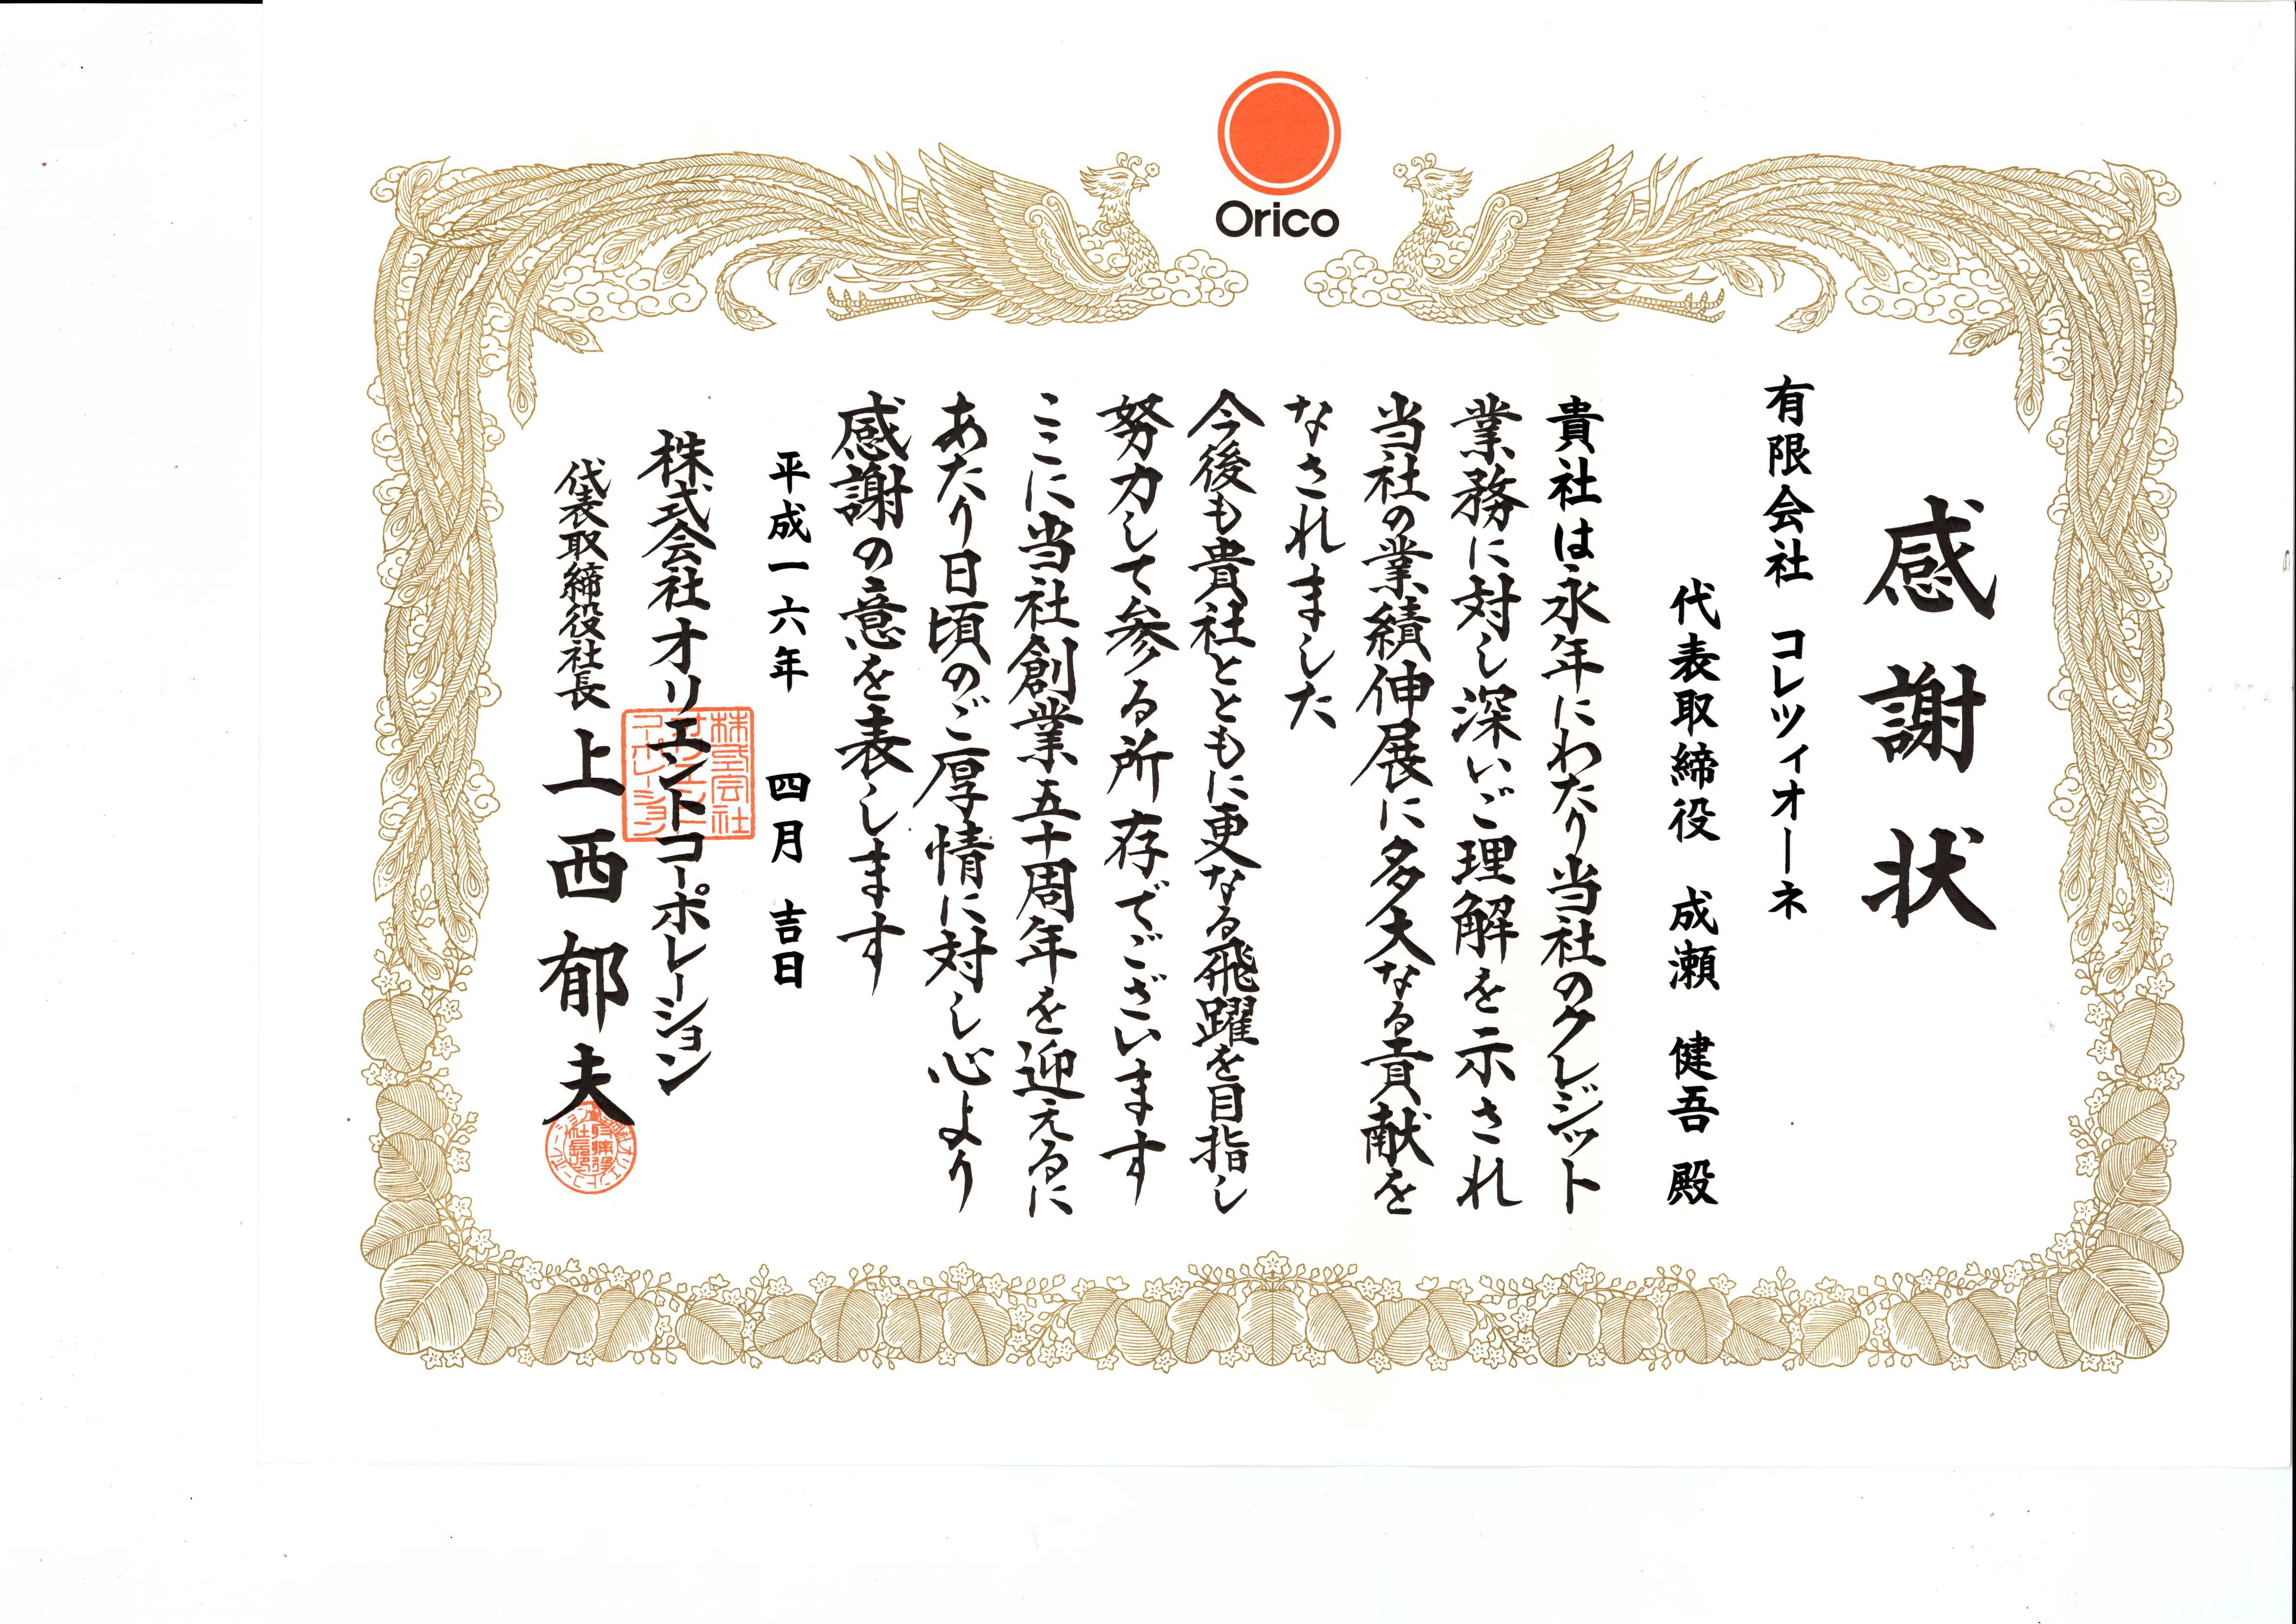 Orico
感謝状
有限会社 コレツィオーネ
代表取締役 成瀬 健吾 殿
貴社は永年にわたり当社のクレジット
業務に対し深いご理解を示され
当社の業績伸展に多大なる貢献を
なされました
今後も貴社とともに更なる飛躍を目指し
努力して参る所存でございます
ここに当社創業五十周年を迎えるに
あたり日頃のご厚情に対し心より
感謝の意を表します
平成一六年 四月 吉日
株式会社オリエントコーポレーション
株式会社
オリエント
コーポレーション
代表取締役社長 上西郁夫